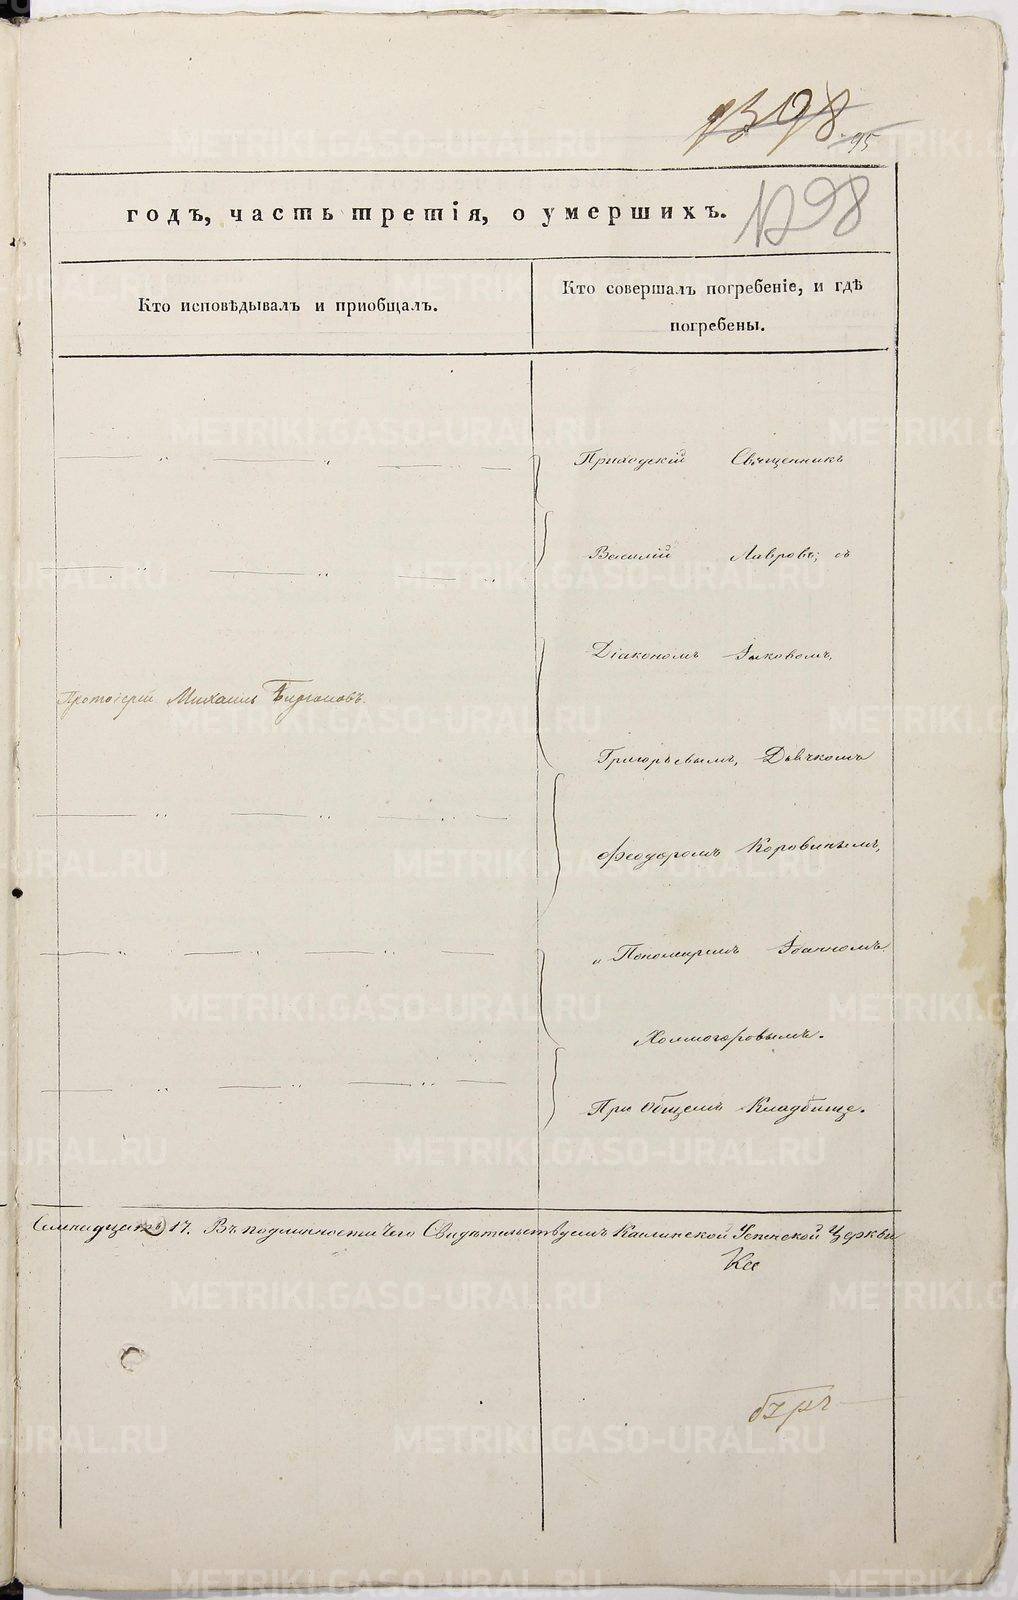 95
1298
годъ, часть третія, о умершихъ.
Кто исповѣдывалъ и приобщалъ.
Кто совершалъ погребеніе, и гдѣ
погребены.
Приходскій Священникъ
Василій Лавровъ; съ
Діакономъ Іаковомъ
Протоіерей Михаилъ
Григорьевымъ, Дьячкомъ
Феодоромъ Коровинымъ,
и Пономаремъ Іоанномъ
Холмогоровымъ.
При Общемъ Кладбище.
Семнадцать 17. Въ подлинности чего Свидѣтельствуемъ Каслинской Успенской Церкви
METRIKI.GASO-URAL.RU